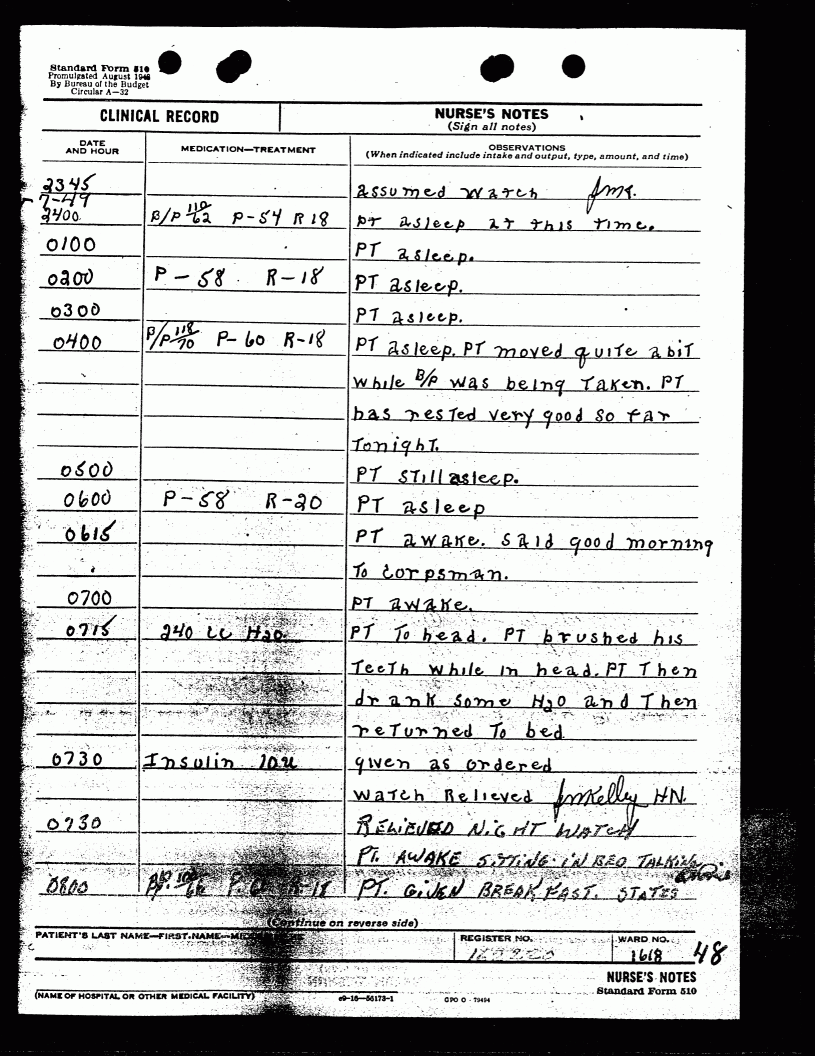 Standard Form 510
Promulgated August 1948
By Bureau of the Budget
Circular A—32
CLINICAL RECORD
NURSE'S NOTES
(Sign all notes)
DATE AND HOUR
MEDICATION—TREATMENT
OBSERVATIONS
(When indicated include intake and output, type, amount, and time)
2345 assumed watch
7-49
2400 B/P 110/62 P-54 R 18 PT asleep at this time.
0100 PT asleep.
0200 P-58 R-18 PT asleep.
0300 PT asleep.
0400 B/P 118/70 P-60 R-18 PT asleep. PT moved quite a bit
while B/P was being Taken. PT
has rested very good so far
Tonight.
0500 PT still asleep.
0600 P-58 R-20 PT asleep
0615 PT awake. said good morning
To corpsman.
0700 PT awake.
0715 240 cc H2O PT To head. PT brushed his
Teeth while in head. PT Then
drank some H2O and Then
returned To bed
0730 Insulin 10u given as ordered
watch Relieved JMKelly HN.
0730 RELIEVED NIGHT WATCH
PT. AWAKE SITTING IN BED TALKING
0800 R-18 PT. GIVEN BREAKFAST. STATES
(Continue on reverse side)
PATIENT'S LAST NAME—FIRST NAME—
REGISTER NO.
WARD NO.
1618
48
NURSE'S NOTES
Standard Form 510
(NAME OF HOSPITAL OR OTHER MEDICAL FACILITY)
c9—16—56173-1
GPO O - 79494